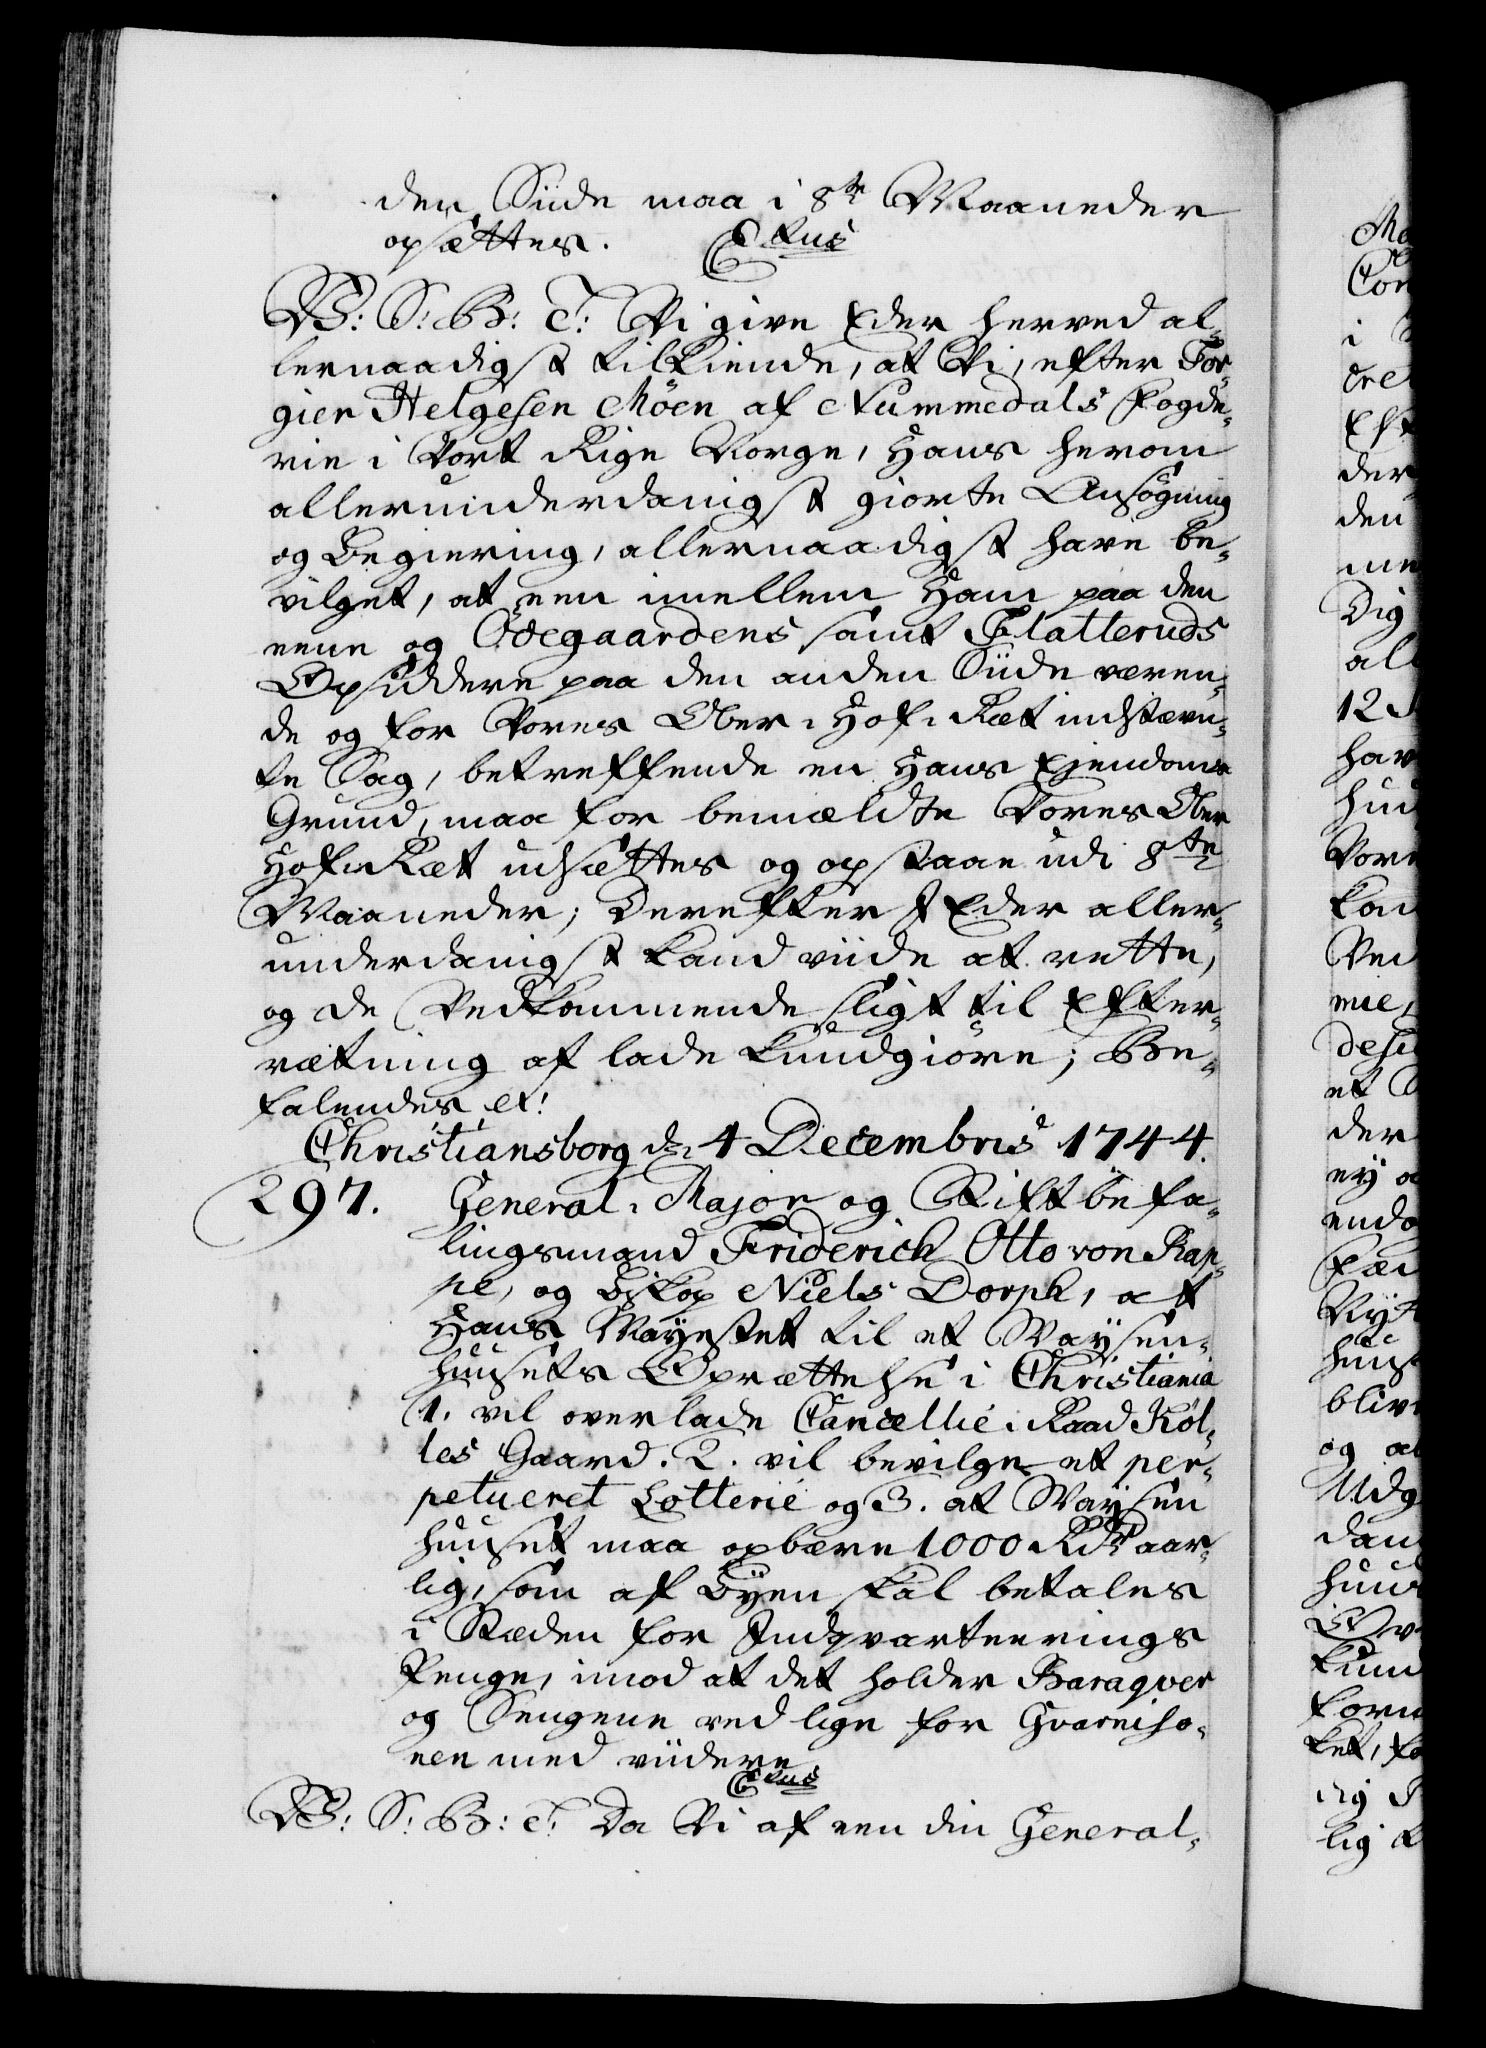 den Siide maa i 8te Maaneder
opsættes. CXtus
V: S: B: T: Vi give Eder herved al-
lernaadigst tilkiende, at Vi, efter Tor-
gier Helgesen Möen af Nummedals Fogde-
rie i Vort Rige Norge, Hans herom
allerunderdanigst giorte Ansögning
og Begiering, allernaadigst have be-
vilget, at een imellem Ham paa den
eene og Ödegaardens samt Flatteruds
Opsiddere paa den anden Siide væren-
de og for Vores Ober-Hof-Ræt indstævn-
te Sag, betreffende en Hans Ejendoms
Grund, maa for bemældte Vores Ober
Hof-Ræt udsættes og opstaae udi 8te
Maaneder; Derefter I Eder aller-
underdanigst kand viide at rette,
og de Vedkommende sligt til Efter-
rætning at lade kundgiöre; Be-
falendes et!
Christiansborg d: 4 Decembris 1744.
297. General-Major og Stiftbefa-
lingsmand Friderich Otto von Rap-
pe, og Biskop Niels Dorph, at
Hans Mayestet til et Waysen-
huusets Oprættelse i Christiania
1. vil overlade Cancellie-Raad Köl-
les Gaard. 2. vil bevilge et per-
petueret Lotterie og 3. at Waysen
huuset maa opbære 1000 Rdr aar-
lig, som af Byen skal betales
i Stæden for Indqvarteerings
Penge, imod at det holder Baraqver
og Sengene ved lige for Gvarniso-
nen med viidere
CXtus
V: S: B: T: Da Vi af een din General-